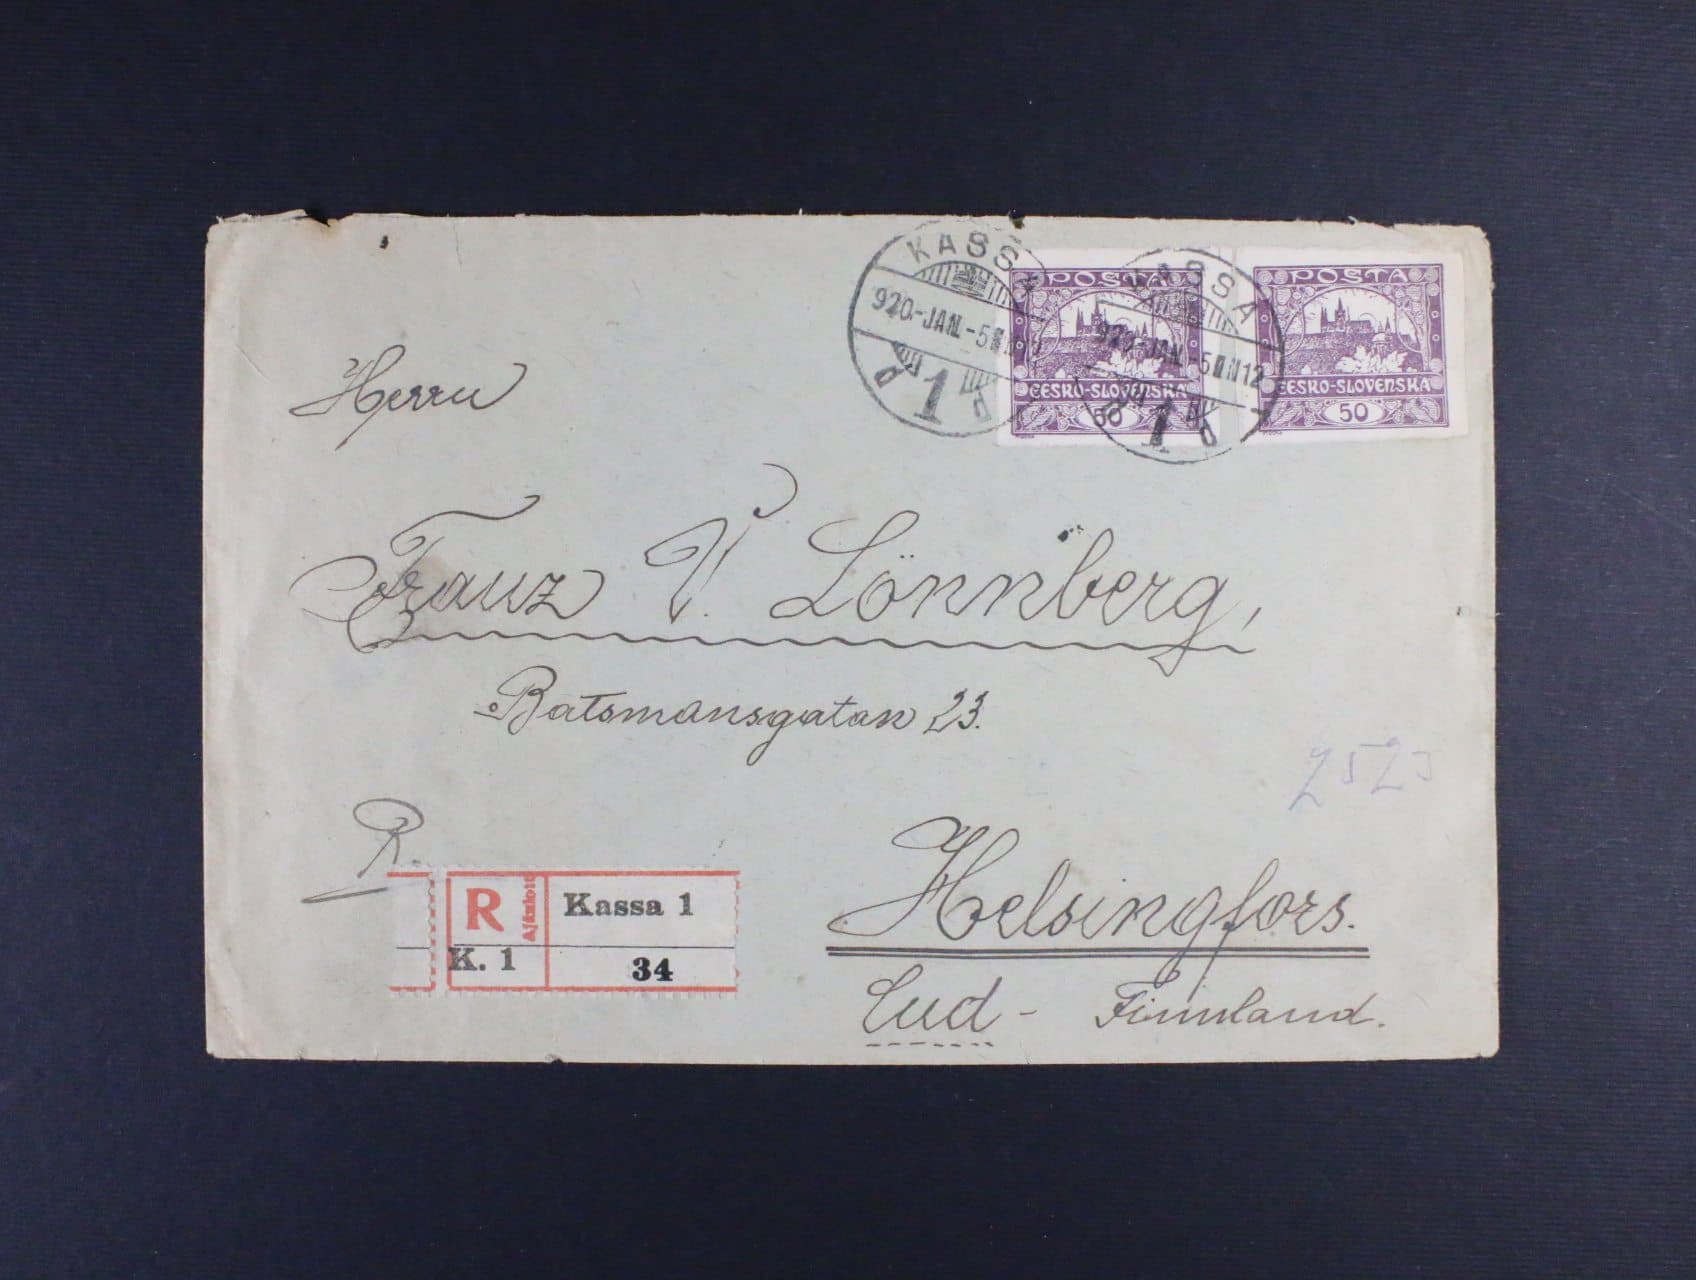 KASSA
920-JAN.-5 N12
1
KASSA
920-JAN.-5 N12
1
POSTA
ČESKO-SLOVENSKA
50
POSTA
ČESKO-SLOVENSKA
50
Herrn
Franz V. Lönnberg,
Batsmansgatan 23.
2523
R.
R Ajánlott Kassa 1
K. 1 34
Helsingfors.
Sud - Finnland.